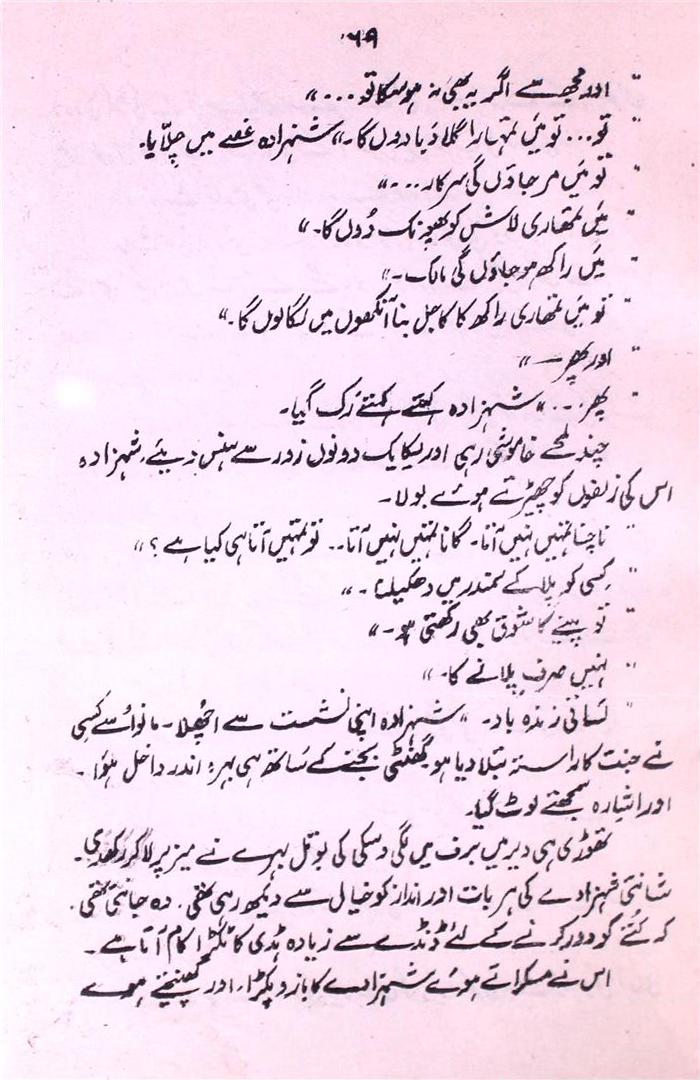 ۶۹
" اور مجھ سے اگر یہ بھی نہ ہو سکا تو ... "
" تو ... تو میں تمہارا گلا دبا دوں گا۔" شہزادہ غصے میں چلّایا۔
" تو میں مر جاؤں گی سرکار ... "
" میں تمھاری لاش کو پھونک دُوں گا۔"
" میں راکھ ہو جاؤں گی مالک۔"
" تو میں تمھاری راکھ کا کاجل بنا آنکھوں میں لگا لوں گا۔"
" اور پھر — "
" پھر ... " شہزادہ کہتے کہتے رُک گیا۔
چند لمحے خاموشی رہی اور یکایک دونوں زور سے ہنس دیئے، شہزادہ
اس کی زلفوں کو چھیڑتے ہوئے بولا۔
" ناچنا تمہیں نہیں آتا۔ گانا تمہیں نہیں آتا۔۔ تو تمہیں آتا ہی کیا ہے ؟ "
" کِسی کو پلا کے سمندر میں دھکیلنا ۔ "
" تو پینے کا شوق بھی رکھتی ہو۔ "
" نہیں صرف پلانے کا۔ "
" ساقی زندہ باد۔ " شہزادہ اپنی نشست سے اچھلا۔ مانو اُسے کسی
نے جنت کا راستہ بتلا دیا ہو گھنٹی بجنے کے ساتھ ہی بہرہ اندر داخل ہُوا ۔
اور اشارہ سمجھتے لوٹ گیا۔
تھوڑی ہی دیر میں برف میں لگی وسکی کی بوتل بہرے نے میز پر لا کر رکھدی۔
شانتی شہزادے کی ہر بات اور انداز کو خیال سے دیکھ رہی تھی ۔ وہ جانتی تھی ۔
کہ کُتّے کو دور کرنے کے لئے ڈنڈے سے زیادہ ہڈی کا ٹکڑا کام آتا ہے ۔
اس نے مسکراتے ہوئے شہزادے کا بازو پکڑا، اور کھینچتے ہوے